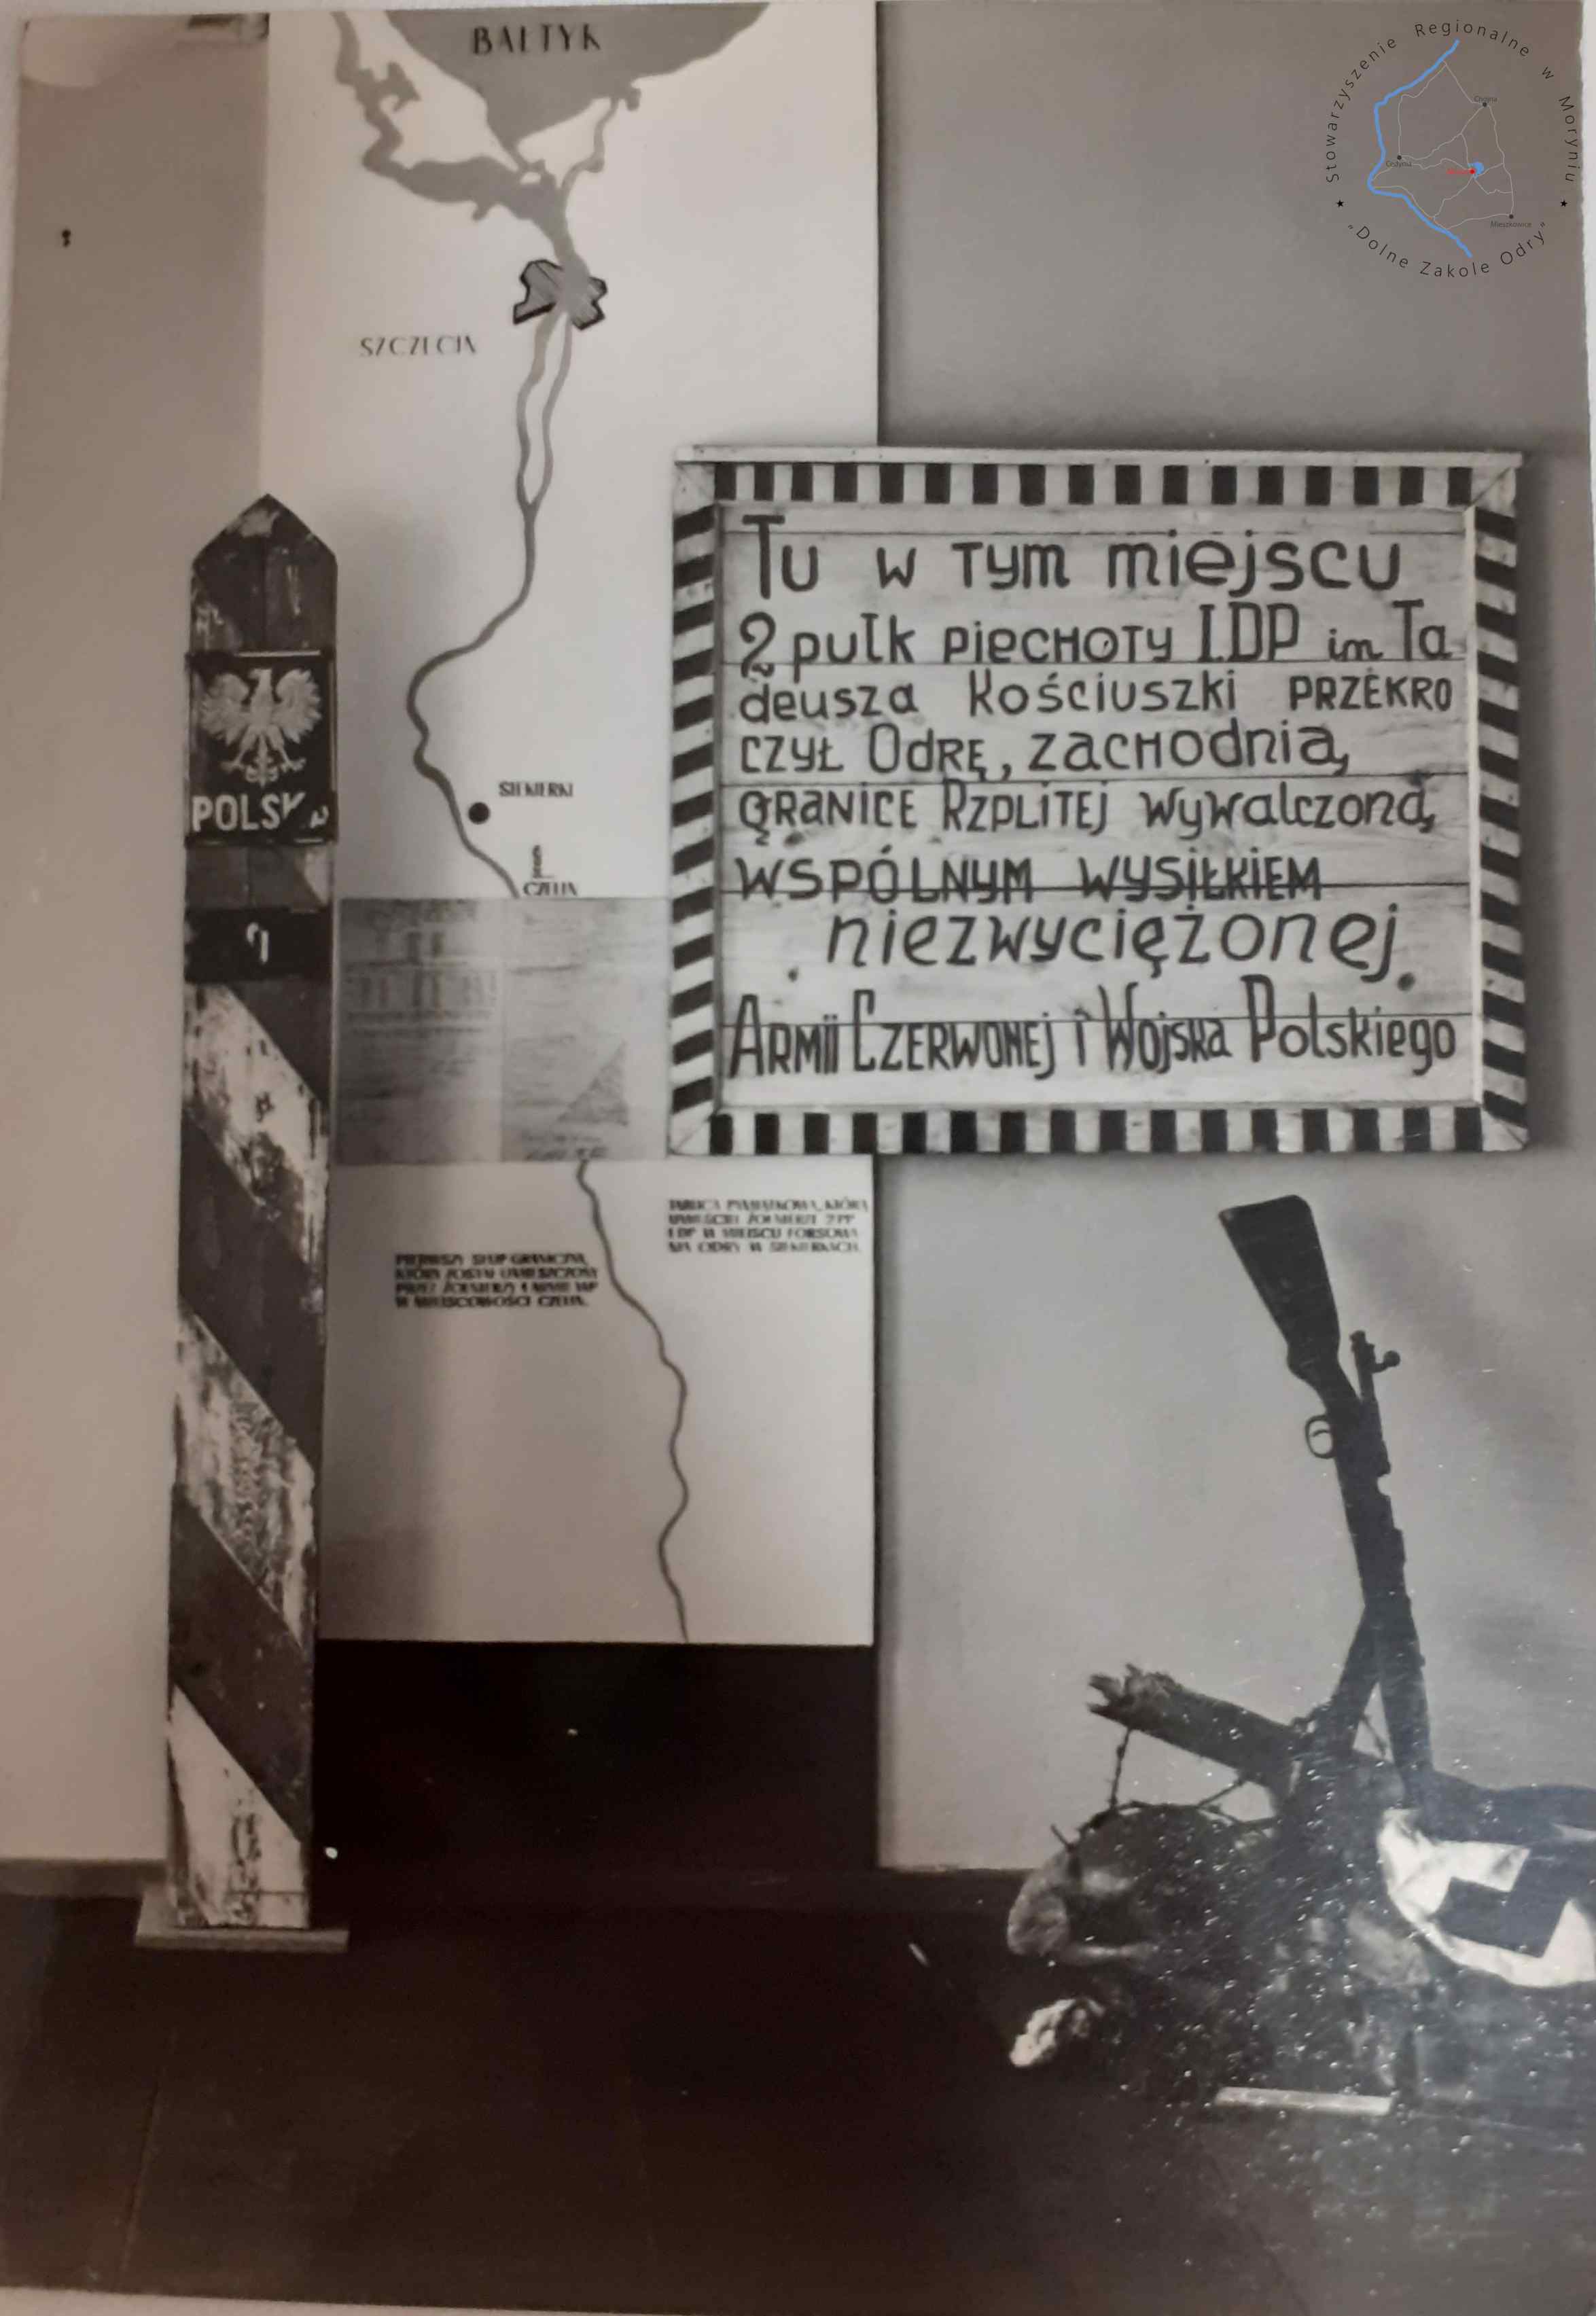 BAŁTYK
SZCZECIN
SIEKIERKI
CZELIN
POLSKA
Tu w tym miejscu
2 pułk piechoty I.DP im Ta
deusza Kościuszki PRZEKRO
CZYŁ OdRĘ, zachodnią,
GRANICE RZPLITEJ wywalczoną,
WSPÓLNYM WYSIŁKIEM
niezwyciężonej
ARMII CZERWONEJ i Wojska Polskiego
TABLICA PAMIĄTKOWA, KTÓRĄ
UMIEŚCILI ŻOŁNIERZE 2 PP
1 DP W MIEJSCU FORSOWA
NIA ODRY W SIEKIERKACH.
PIERWSZY SŁUP GRANICZNY,
KTÓRY ZOSTAŁ UMIESZCZONY
PRZEZ ŻOŁNIERZY 1 ARMII WP
W MIEJSCOWOŚCI CZELIN.
Stowarzyszenie Regionalne w Moryniu
"Dolne Zakole Odry"
Chojna
Cedynia
Mieszkowice